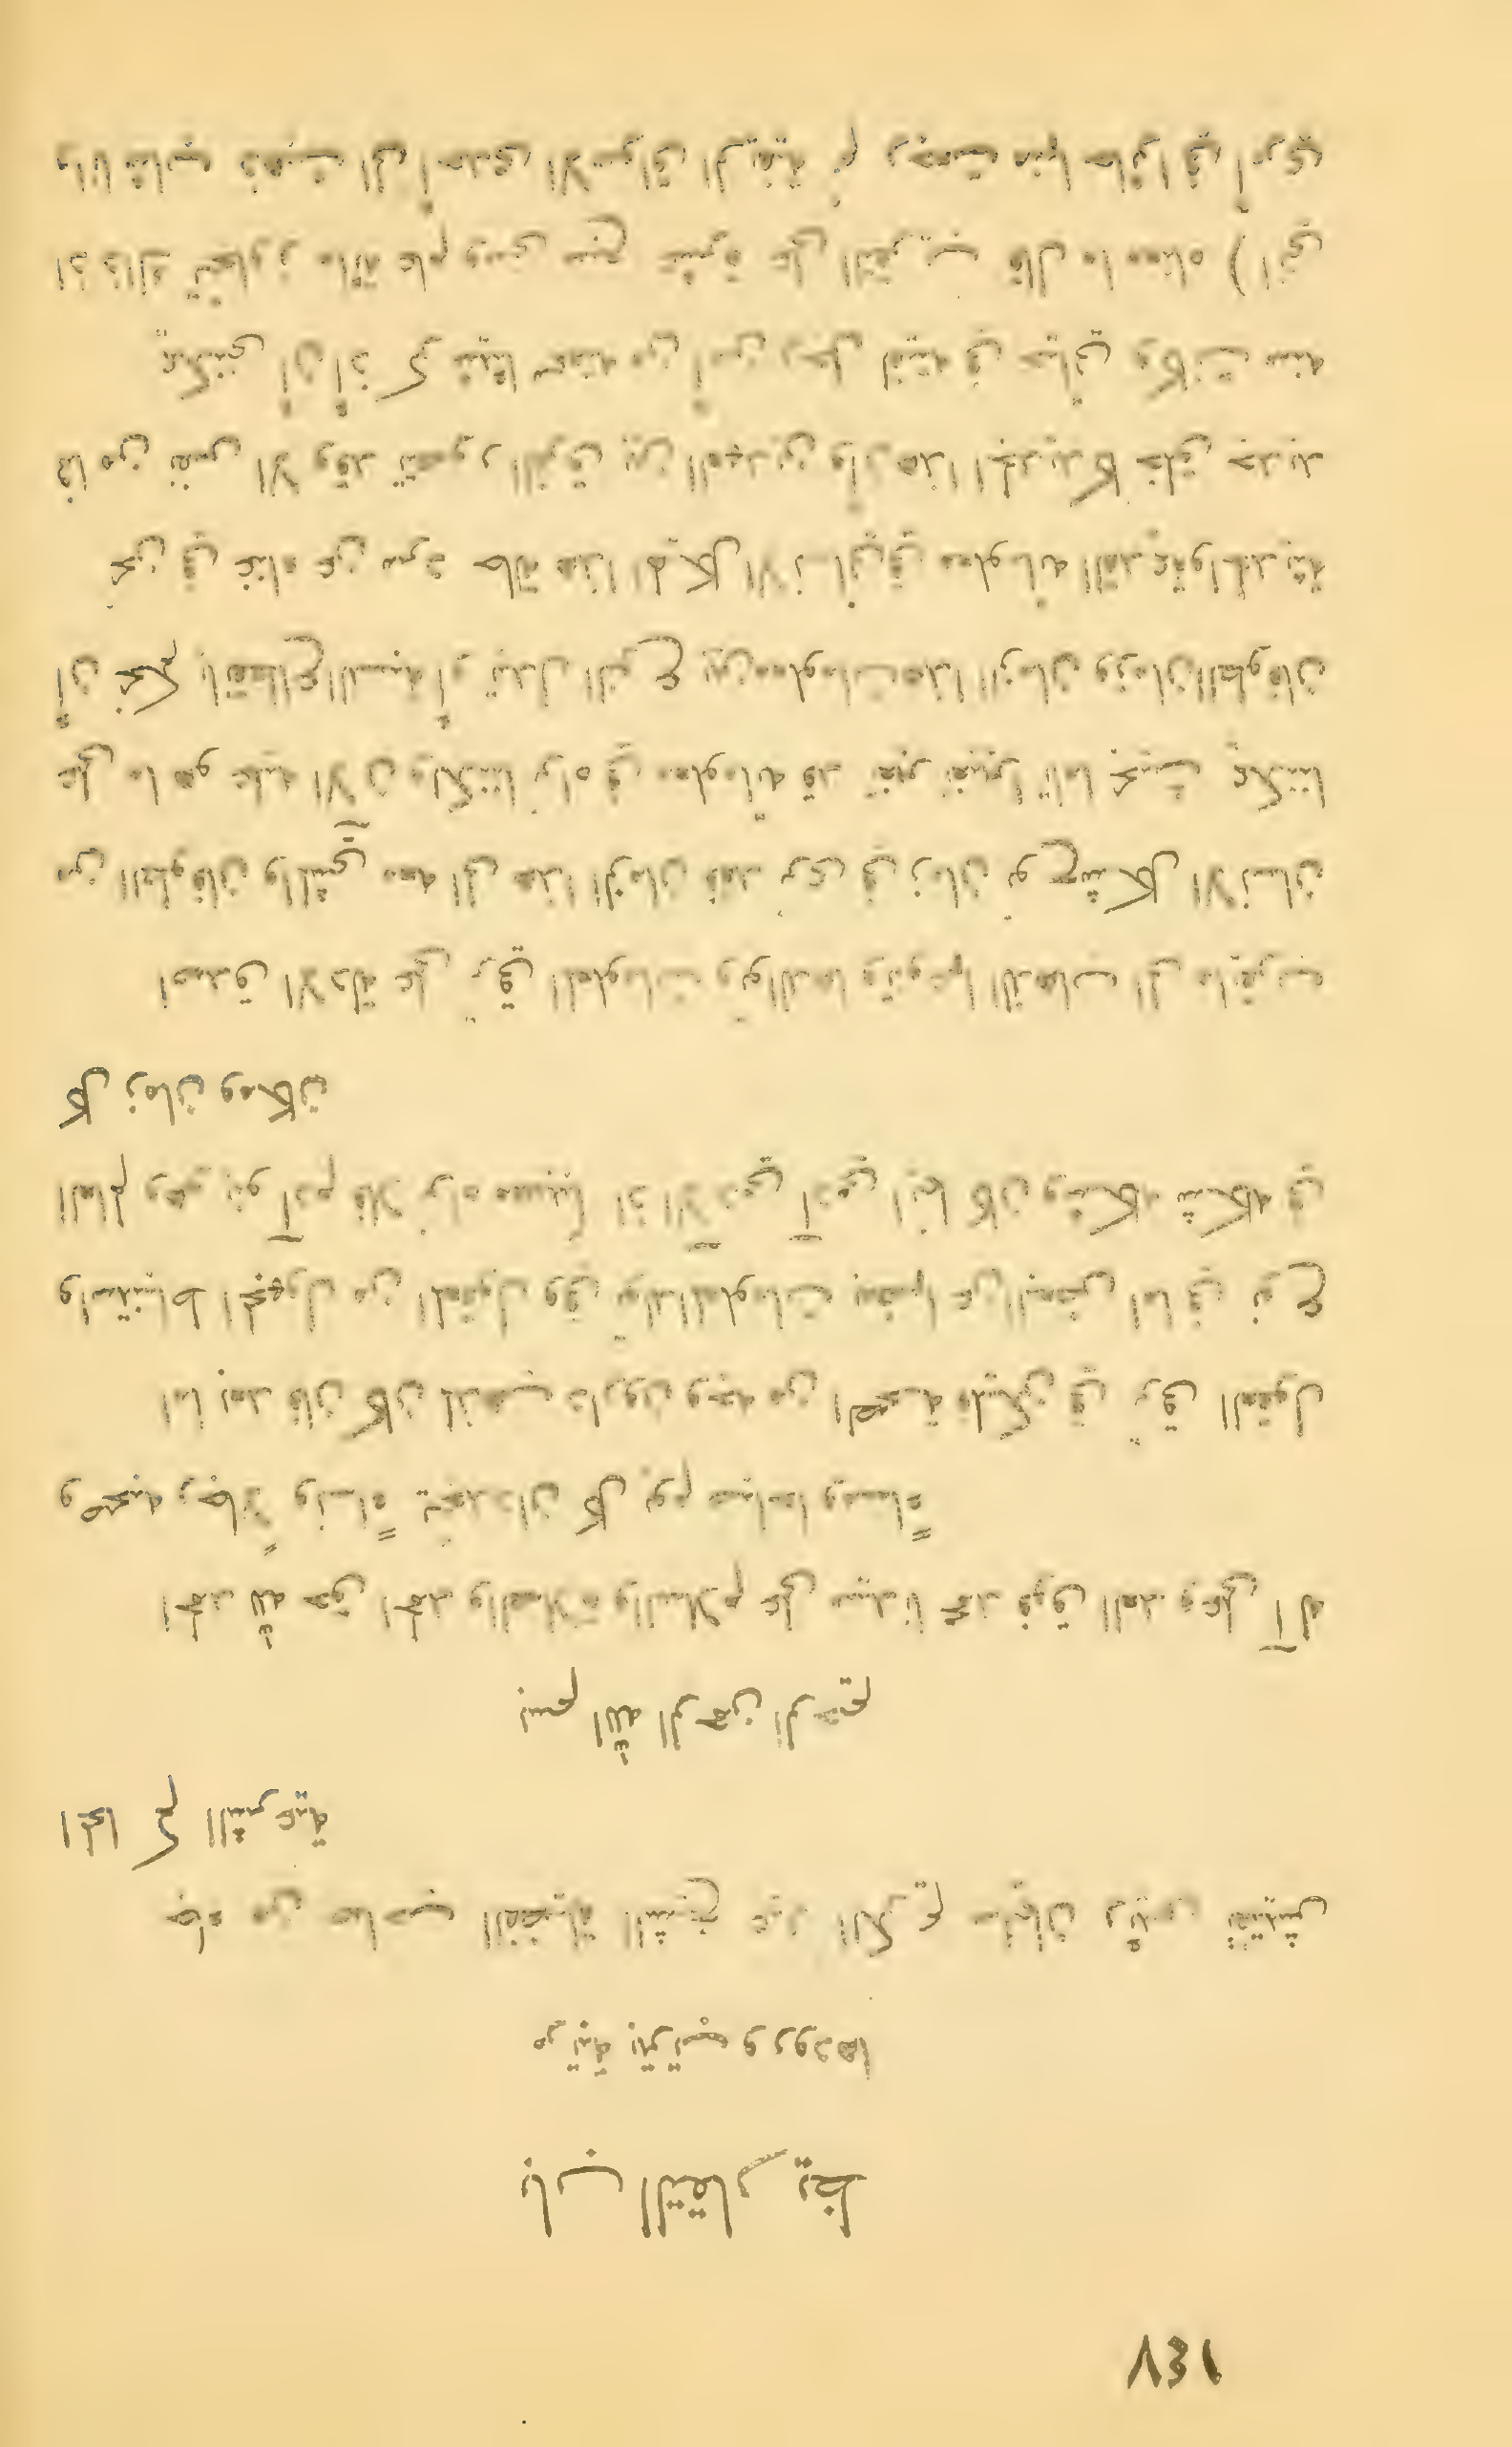 ١٤٨
باب التقاريظ
مرتبة بترتيب ورودها
جاء من صاحب الفضيلة الشيخ عبد الكريم سلمان رئيس تفتيش
المحاكم الشرعية
بسم الله الرحمن الرحيم
الحمد لله حق الحمد والصلاة والسلام على سيدنا محمد فوق العد وعلى آله
وصحبه رجالاً ونساءً يتجددان كل يوم صباحا ومساءً
اما بعد فان كان لمذهب داروين وجه من الصحة فليكن في رقي العقول
واستنباط المجهول من المعقول وفي توالد المعلومات بعضها عن البعض اما في نوع
العالم وهو بنو آدم فلا نراه مصيباً اذ الآدمي آدمي اينما كان وشكله شكله في
كل زمان ومكان
اصدق الادلة على رقي المعلومات وتوالدها وتنوعها الذهاب الى ما يقرب
من الطوفان والمشي معه الى هذا الزمان فقد نرى في زمان نوح شكل الانسان
على ما هو عليه الآن ولكننا نراه في معلوماته قد تغير تغيرا تاما بحيث يمكننا
أن نحكم بانقطاع النسبة أو تبدل النوع بين معلومات هذا الزمان وزمان الطوفان
نحن في غناء عن سرد حالة هذا الهيكل الانساني في معلوماته القديمة والحديثة
فما من نفس الا وقد تتصور الفرق بين العهدين وأن هذا الجديد خلق جديد
يمكنني أن أذكر شيئا سمعته من رجل لقيته في حياتي وكانت سنه
اذ ذاك تتجاوز مائة عام عشرة على التقريب قال ما معناه ( اني
وانا شاب ذهبت الى احدى الاسواق الريفية ثم رجعت منها في أمري